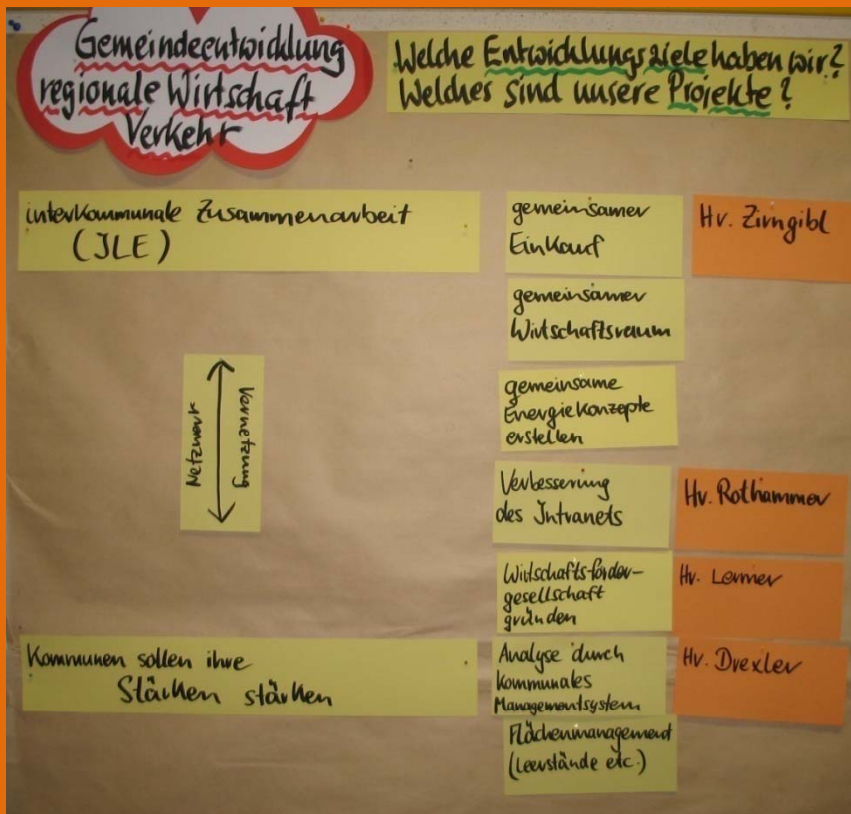 Gemeindeentwicklung
regionale Wirtschaft
Verkehr
Welche Entwicklungsziele haben wir?
Welches sind unsere Projekte?
interkommunale Zusammenarbeit
(JLE)
gemeinsamer
Einkauf
Hr. Zirngibl
gemeinsamer
Wirtschaftsraum
gemeinsame
Energiekonzepte
erstellen
Netzwerk
Vernetzung
Verbesserung
des Intranets
Hr. Rothammer
Wirtschaftsförder-
gesellschaft
gründen
Hr.
Kommunen sollen ihre
Stärken stärken
Analyse durch
kommunales
Managementsystem
Hr. Drexler
Flächenmanagement
(Leerstände etc.)